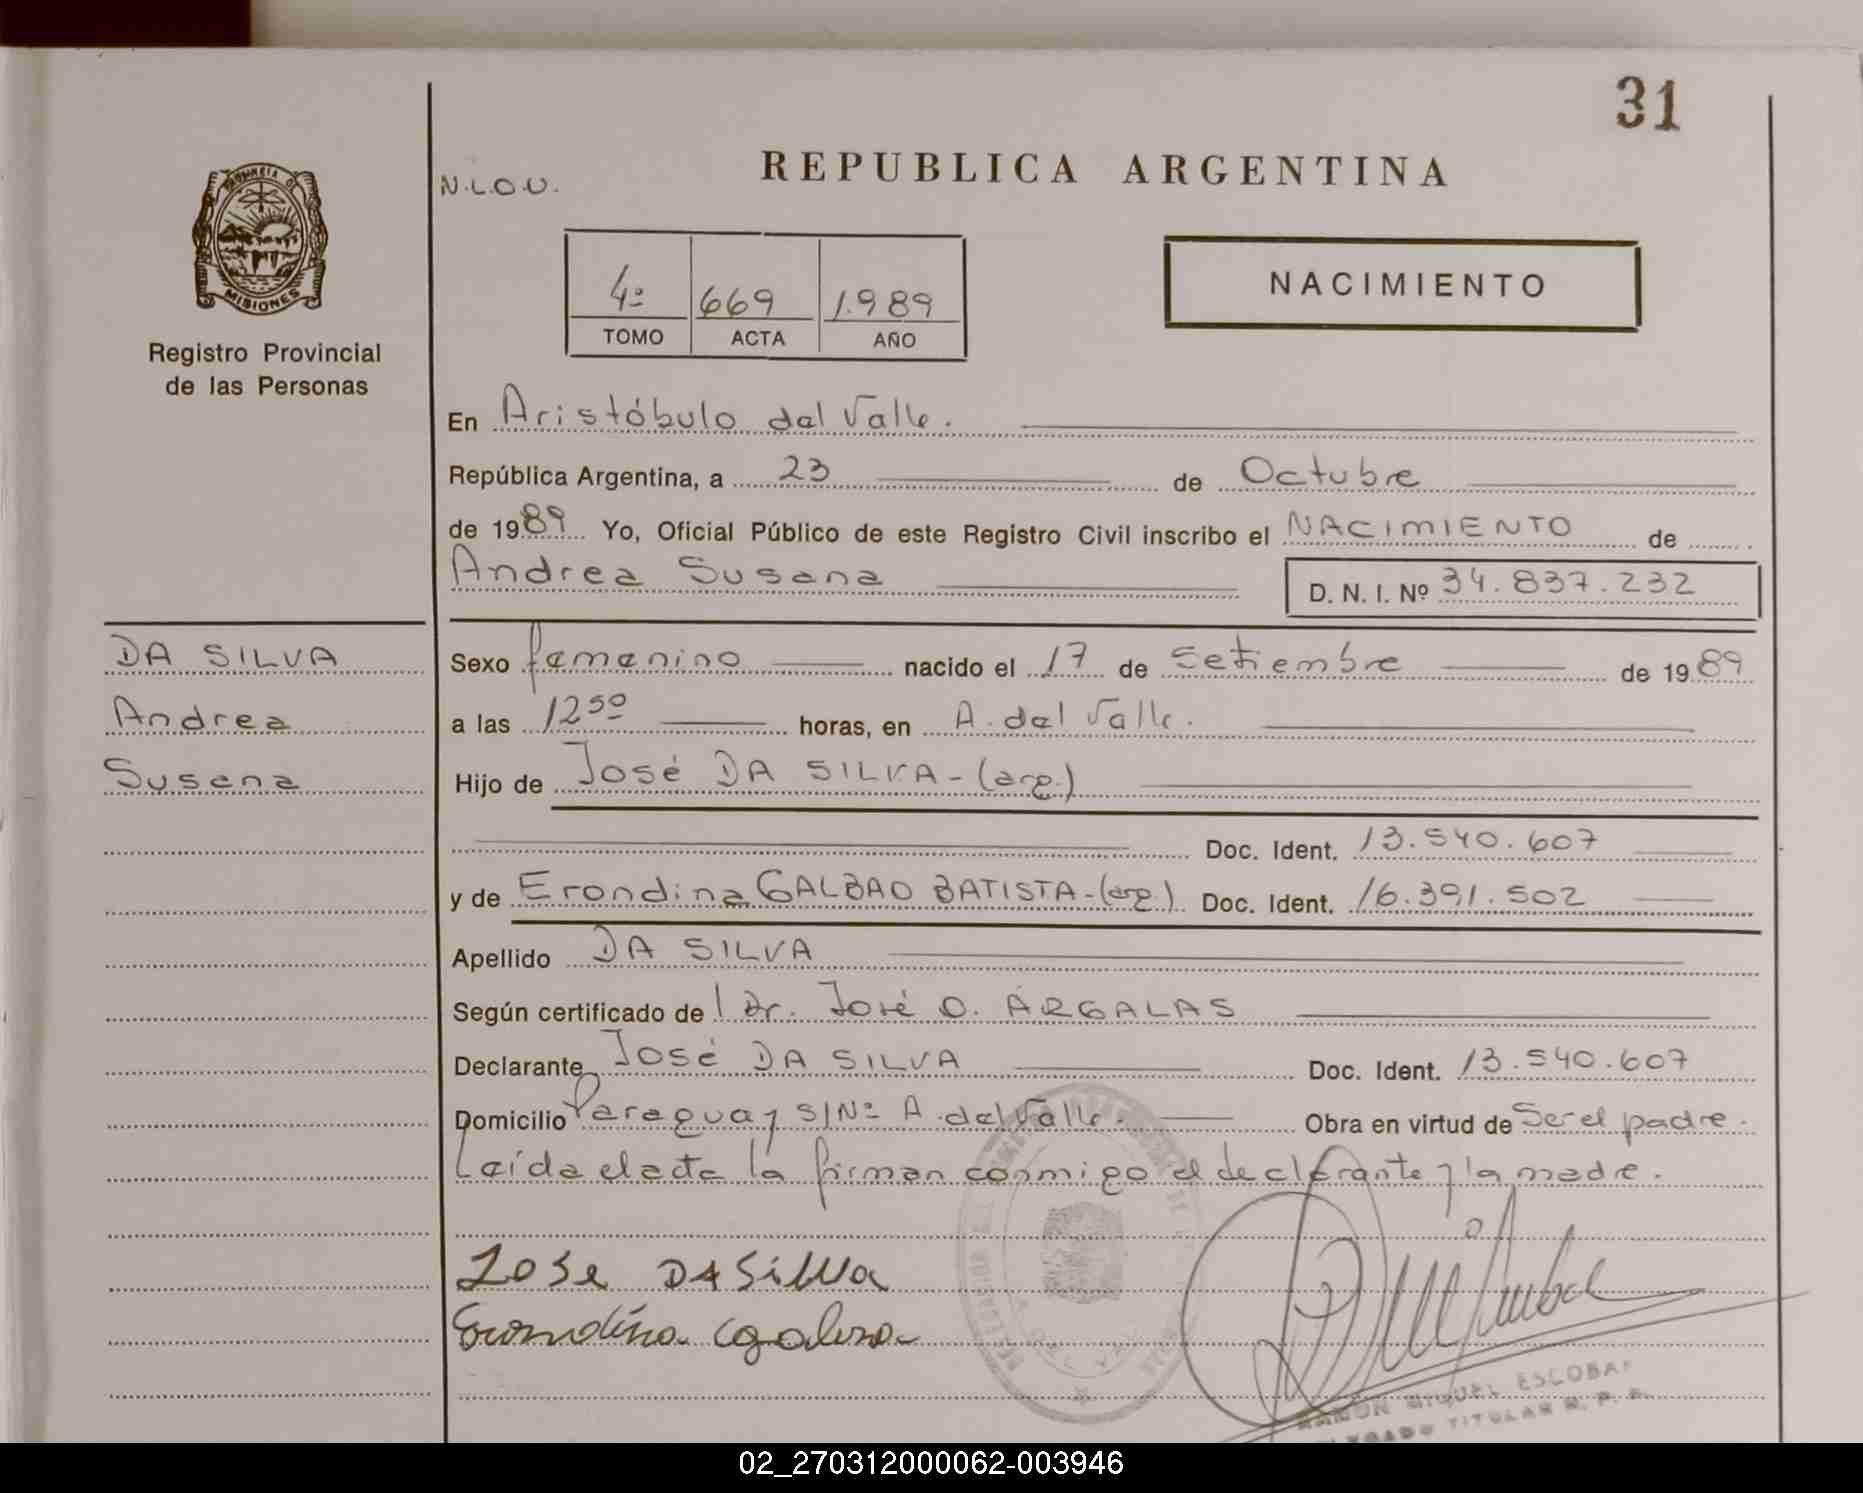 31
REPUBLICA ARGENTINA
N.L.O.U.
PROVINCIA DE
MISIONES
Registro Provincial
de las Personas
4º 669 1.989
TOMO ACTA AÑO
NACIMIENTO
En Aristóbulo del Valle.
República Argentina, a 23 de Octubre
de 1989 Yo, Oficial Público de este Registro Civil inscribo el NACIMIENTO de
Andrea Susana D. N. I. Nº 34.837.232
DA SILVA
Andrea
Susana
Sexo femenino nacido el 17 de Setiembre de 1989
a las 12⁵⁰ horas, en A. del Valle.
Hijo de José DA SILVA-(arg.)
Doc. Ident. 13.540.607
y de Erondina GALBAO BATISTA-(arg.) Doc. Ident. 16.391.502
Apellido DA SILVA
Según certificado del Dr. José O. ARGALAS
Declarante José DA SILVA Doc. Ident. 13.540.607
Domicilio Paraguay S/Nº A. del Valle. Obra en virtud de Ser el padre.
Leída el acta la firman conmigo el declarante y la madre.
Jose DA SilVa
Erondina
RAMON MIGUEL ESCOBAR
DELEGADO TITULAR R. P. P.
02_270312000062-003946